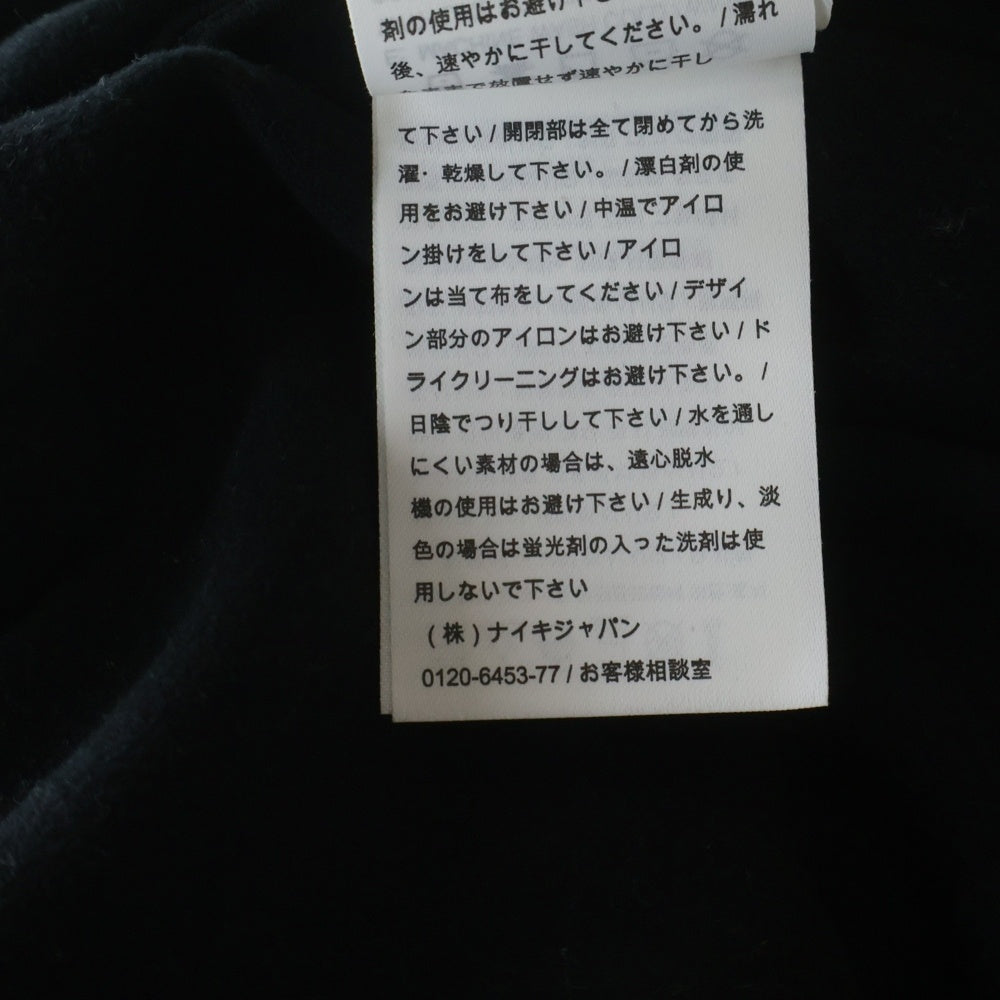 剤の使用はお避け下さ
後、速やかに干してください。 / 濡れ
放置せず速やかに干し
て下さい / 開閉部は全て閉めてから洗
濯・乾燥して下さい。 / 漂白剤の使
用をお避け下さい / 中温でアイロ
ン掛けをして下さい / アイロ
ンは当て布をしてください / デザイ
ン部分のアイロンはお避け下さい / ド
ライクリーニングはお避け下さい。 /
日陰でつり干しして下さい / 水を通し
にくい素材の場合は、遠心脱水
機の使用はお避け下さい / 生成り、淡
色の場合は蛍光剤の入った洗剤は使
用しないで下さい
(株)ナイキジャパン
0120-6453-77 / お客様相談室